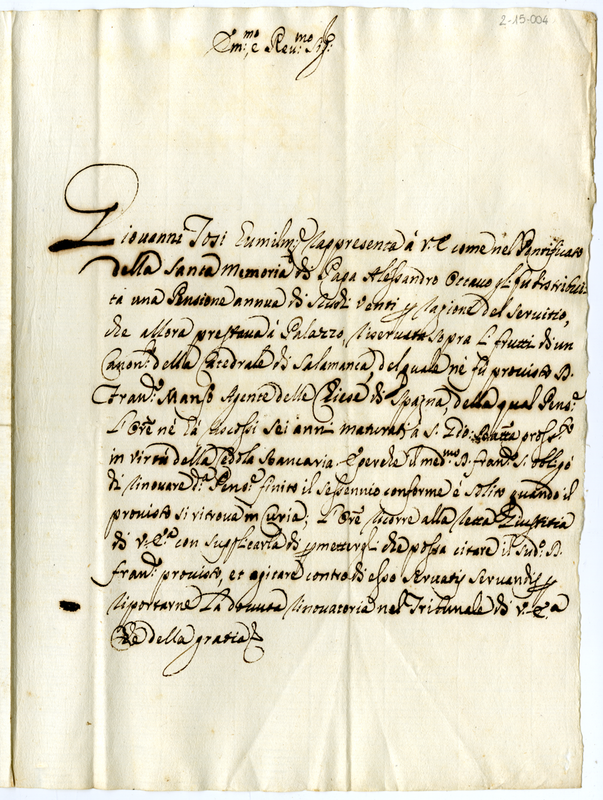 2-15-004
Em:mo e Reu:mo Sig:
Giouanni Tosi Humilm:te rappresenta à V.E. come nel Pontificato
della Santa Memoria di Papa Alessandro Ottauo gli fù distribui-
ta una Pensione annua di scudi venti p ragione del seruizio,
che allora prestaua à Palazzo, riseruata sopra li frutti di un
Canon: della Catedrale di Salamanca, del quale nè fù prouisto D.
Fran: Manso Agente delle Chiese di Spagna, della qual Pens:
l'Ore nè hà riscossi sei anni maturati à S. Gio: Batta pross:
in virtù della Cedola Bancaria. E perche il med:mo D. Fran: si obligò
di rinouare d: Pens: finito il sessennio conforme è solito quando il
prouisto si ritroua in Curia; l'Ore ricorre alla retta Giustitia
di V.E. con supplicarla di pmettergli che possa citare il sud: D.
Fran: prouisto, et agitare contro di esso seruatis seruandis p
riportarne la douuta rinouatoria nel Tribunale di V.E.
Che della gratia